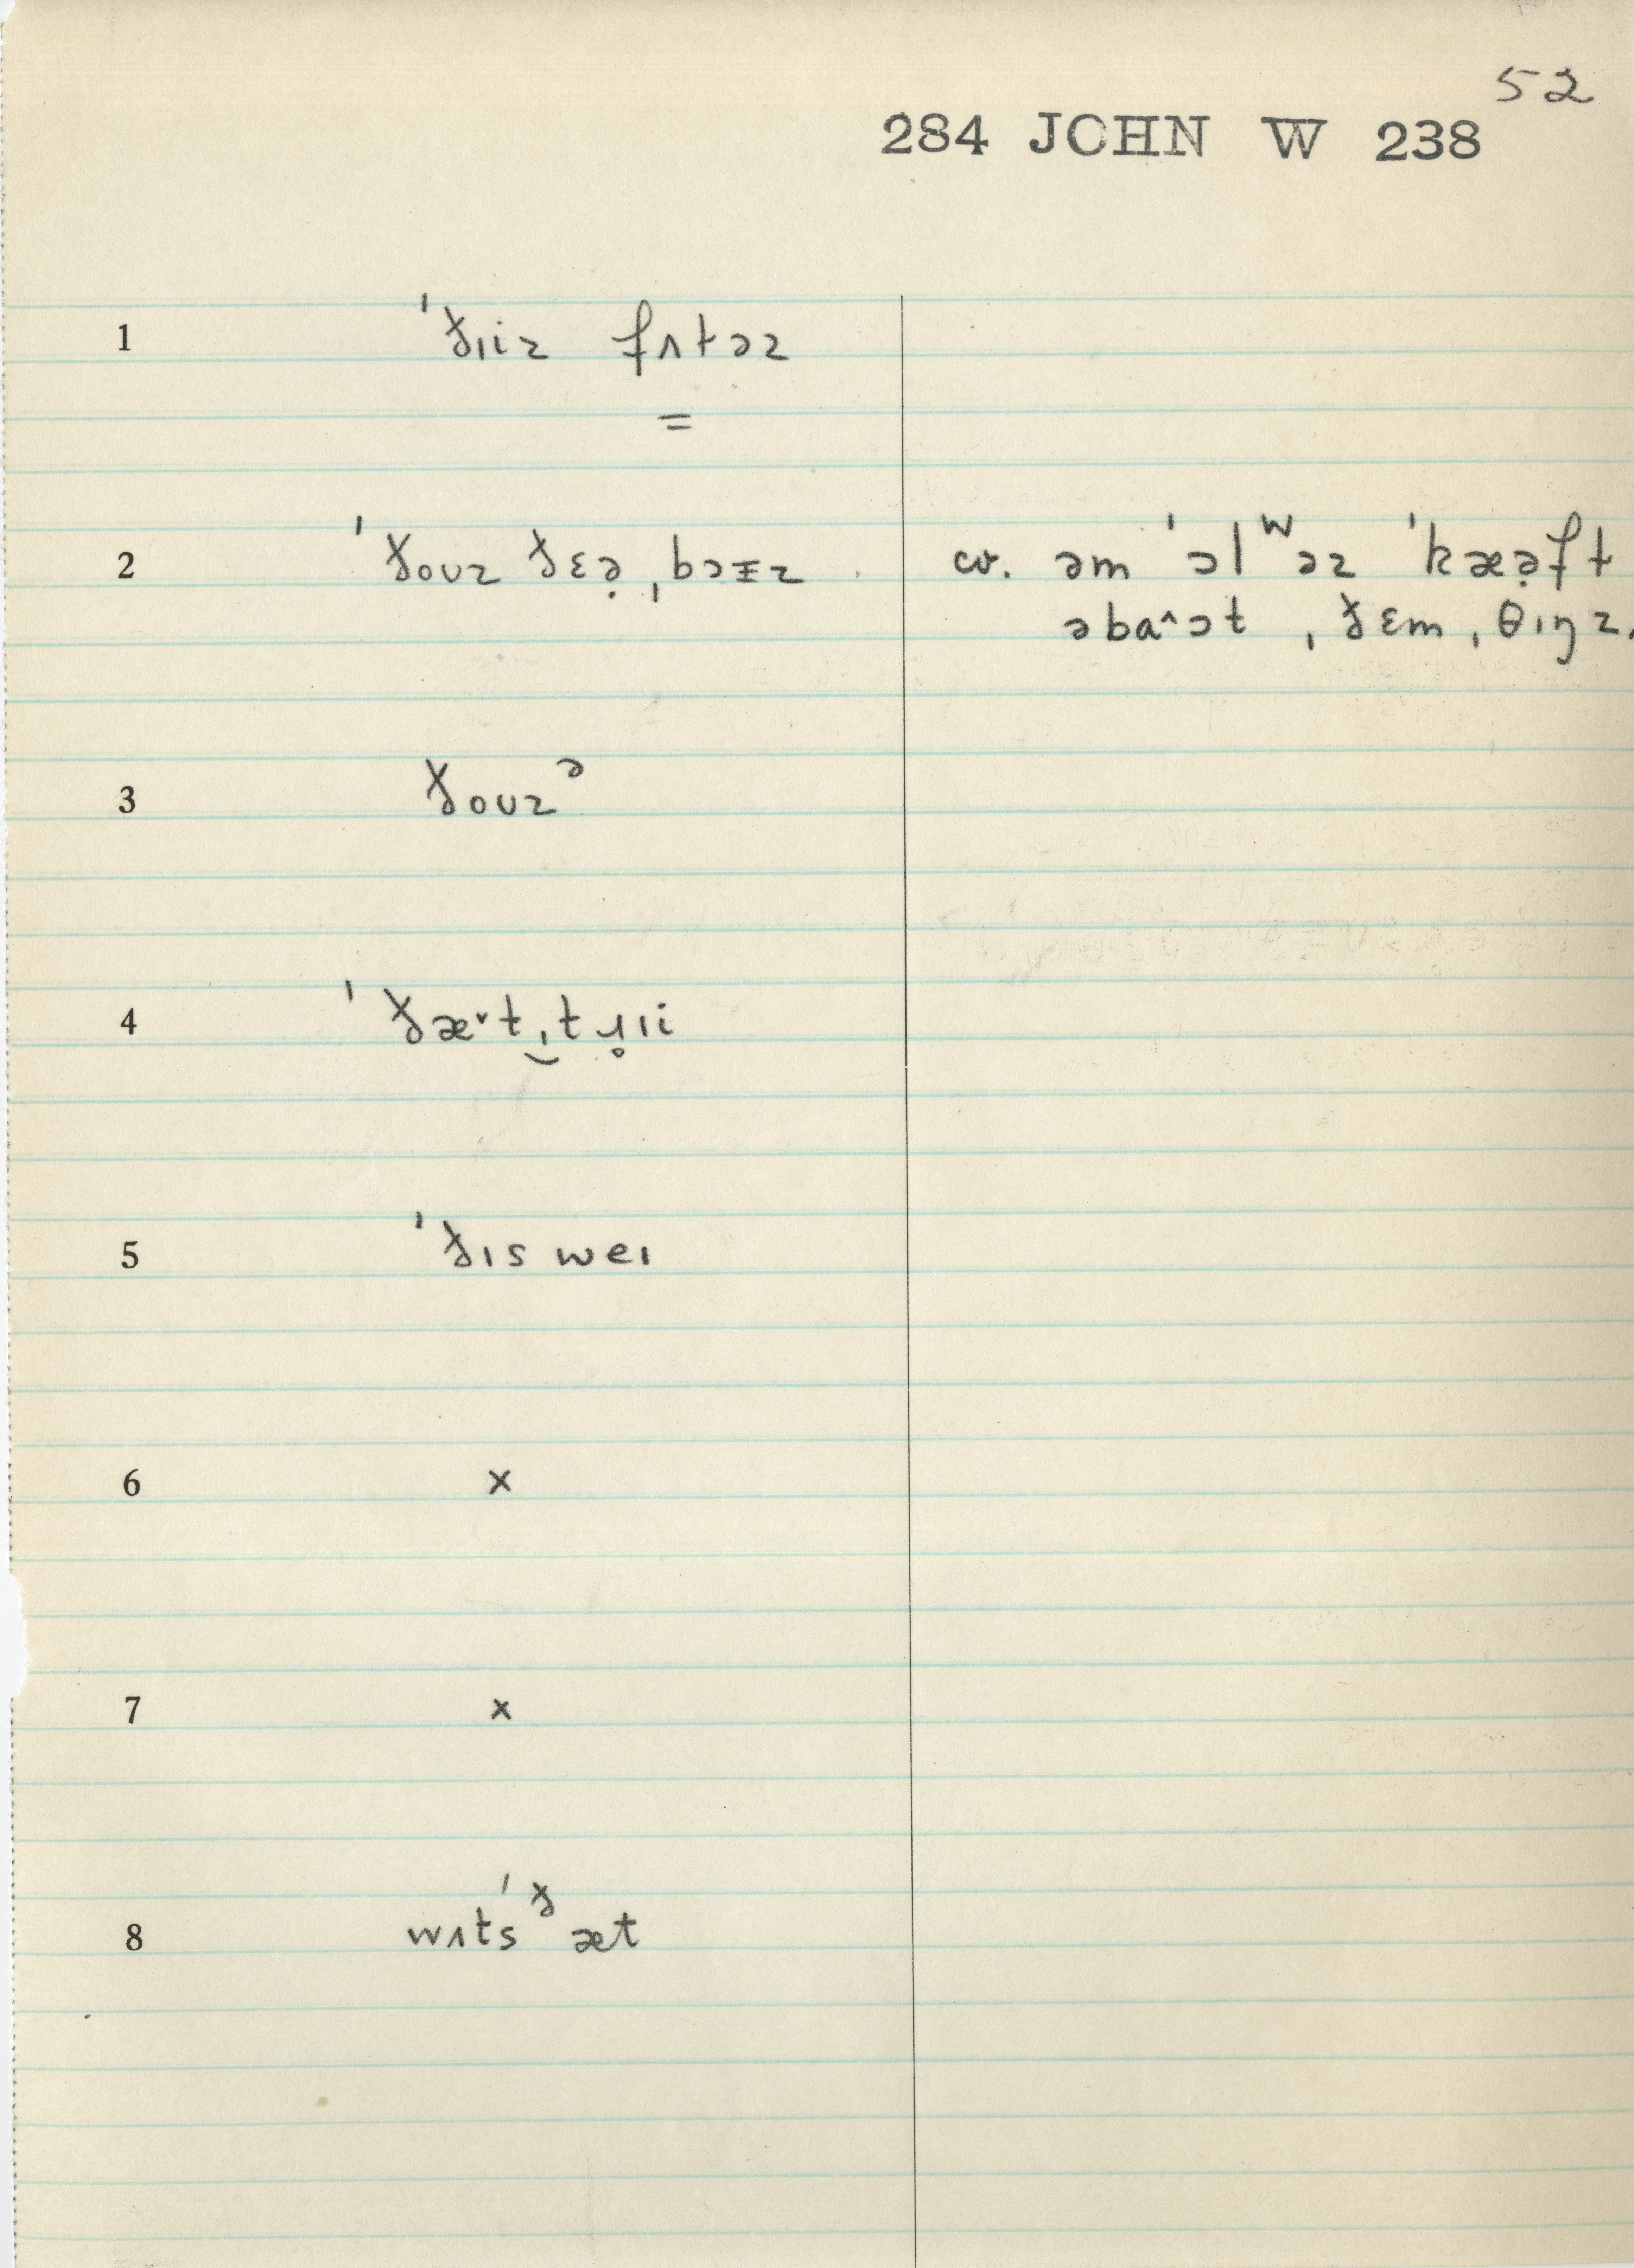 52
284 JOHN W 238
1 ˈðɪiz fʌtəz
=
2 ˈðoʊz ðɛə̣ ˌbɔɪz cv. əm ˈɔlʷəz ˈkæə̣ft
əbaˆɔt ˌðɛm ˌθɪŋz.
3 ðoʊzᵊ
4 ˈðæˇt ̮ˌtɹ̥ɪi
5 ˈðɪs weɪ
6 x
7 x
8 wʌtsˈᶞæt